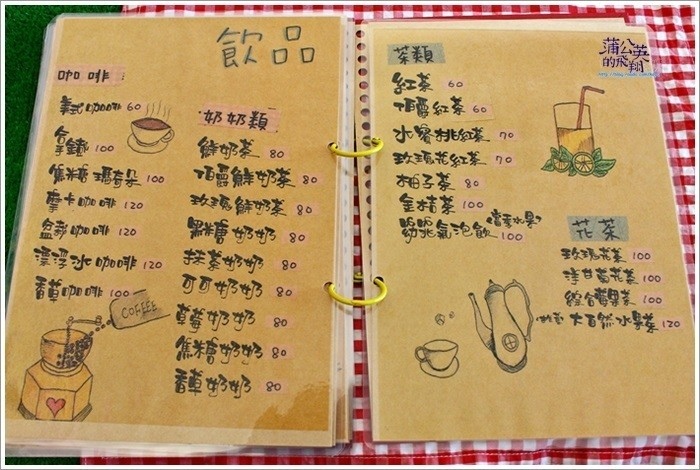 飲品
咖啡
美式咖啡 60
拿鐵 100
焦糖瑪奇朵 100
摩卡咖啡 120
盆栽咖啡 120
漂浮冰咖啡 120
香草咖啡 100
COFFEE
奶奶類
鮮奶茶 80
頂級鮮奶茶 80
玫瑰鮮奶茶 80
黑糖奶奶 80
抹茶奶奶 80
可可奶奶 80
草莓奶奶 80
焦糖奶奶 80
香草奶奶 80
茶類
紅茶 60
頂級紅茶 60
水蜜桃紅茶 70
玫瑰花紅茶 70
柚子茶 80
金桔茶 80
氣泡飲(當季水果) 100
花茶
玫瑰花茶 100
洋甘菊花茶 100
綜合莓果茶 100
大自然水果茶 120
蒲公英
的飛翔